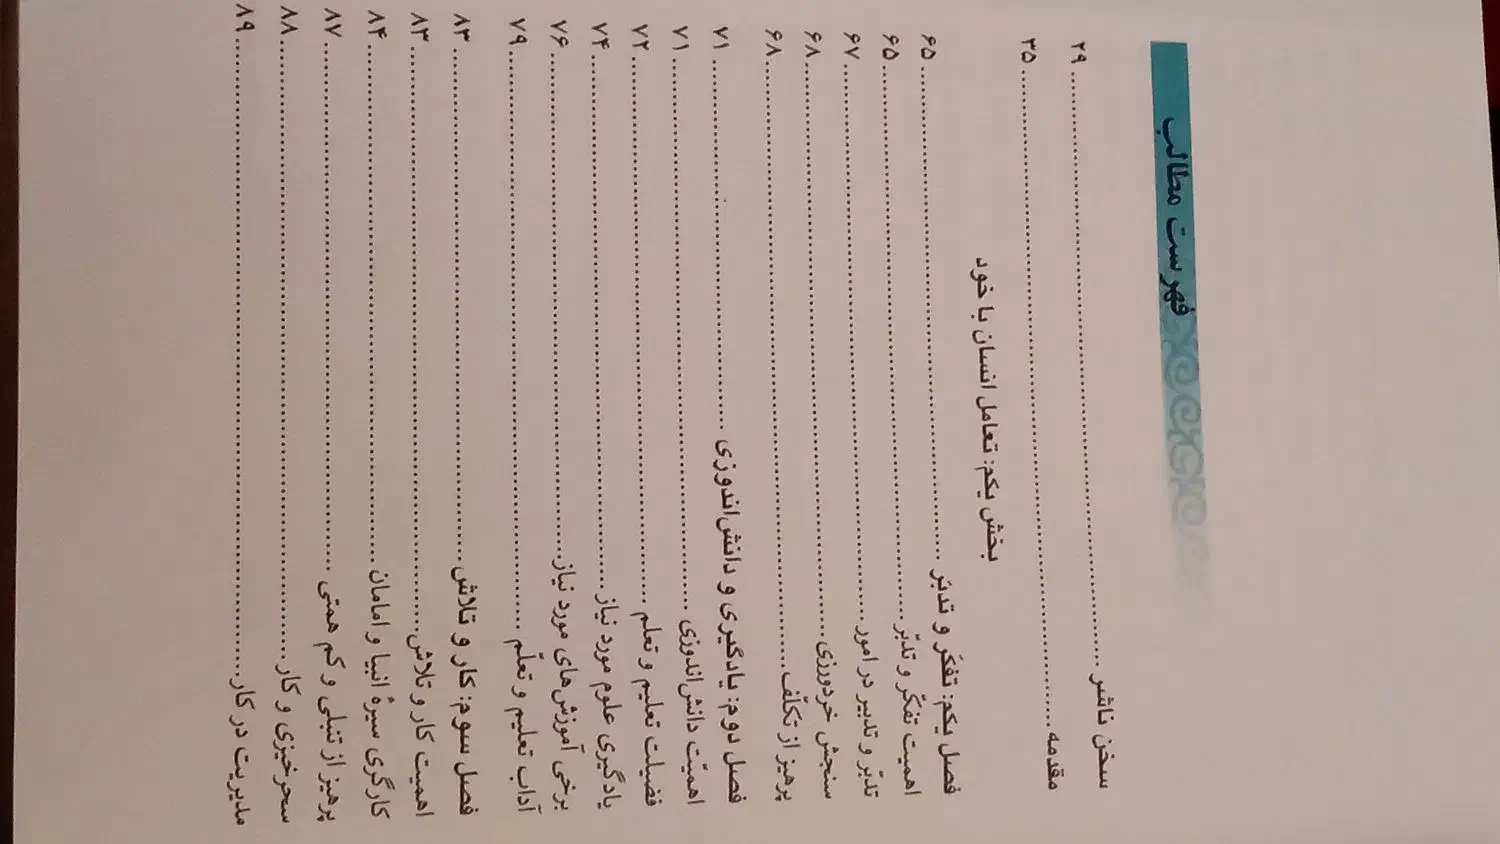 فهرست مطالب
سخن ناشر ........ ۲۹
مقدمه ........ ۳۵
بخش یکم: تعامل انسان با خود
فصل یکم: تفکّر و تدبّر ........ ۶۵
اهمیت تفکّر و تدبّر ........ ۶۵
تدبّر و تدبیر در امور ........ ۶۷
سنجش خردورزی ........ ۶۸
پرهیز از تکلّف ........ ۶۸
فصل دوم: یادگیری و دانش‌اندوزی ........ ۷۱
اهمیّت دانش‌اندوزی ........ ۷۱
فضیلت تعلیم و تعلم ........ ۷۲
یادگیری علوم مورد نیاز ........ ۷۴
برخی آموزش‌های مورد نیاز ........ ۷۶
آداب تعلیم و تعلّم ........ ۷۹
فصل سوم: کار و تلاش ........ ۸۳
اهمیت کار و تلاش ........ ۸۳
کارگری سیرهٔ انبیا و امامان ........ ۸۴
پرهیز از تنبلی و کم همتی ........ ۸۷
سحرخیزی و کار ........ ۸۸
مدیریت در کار ........ ۸۹